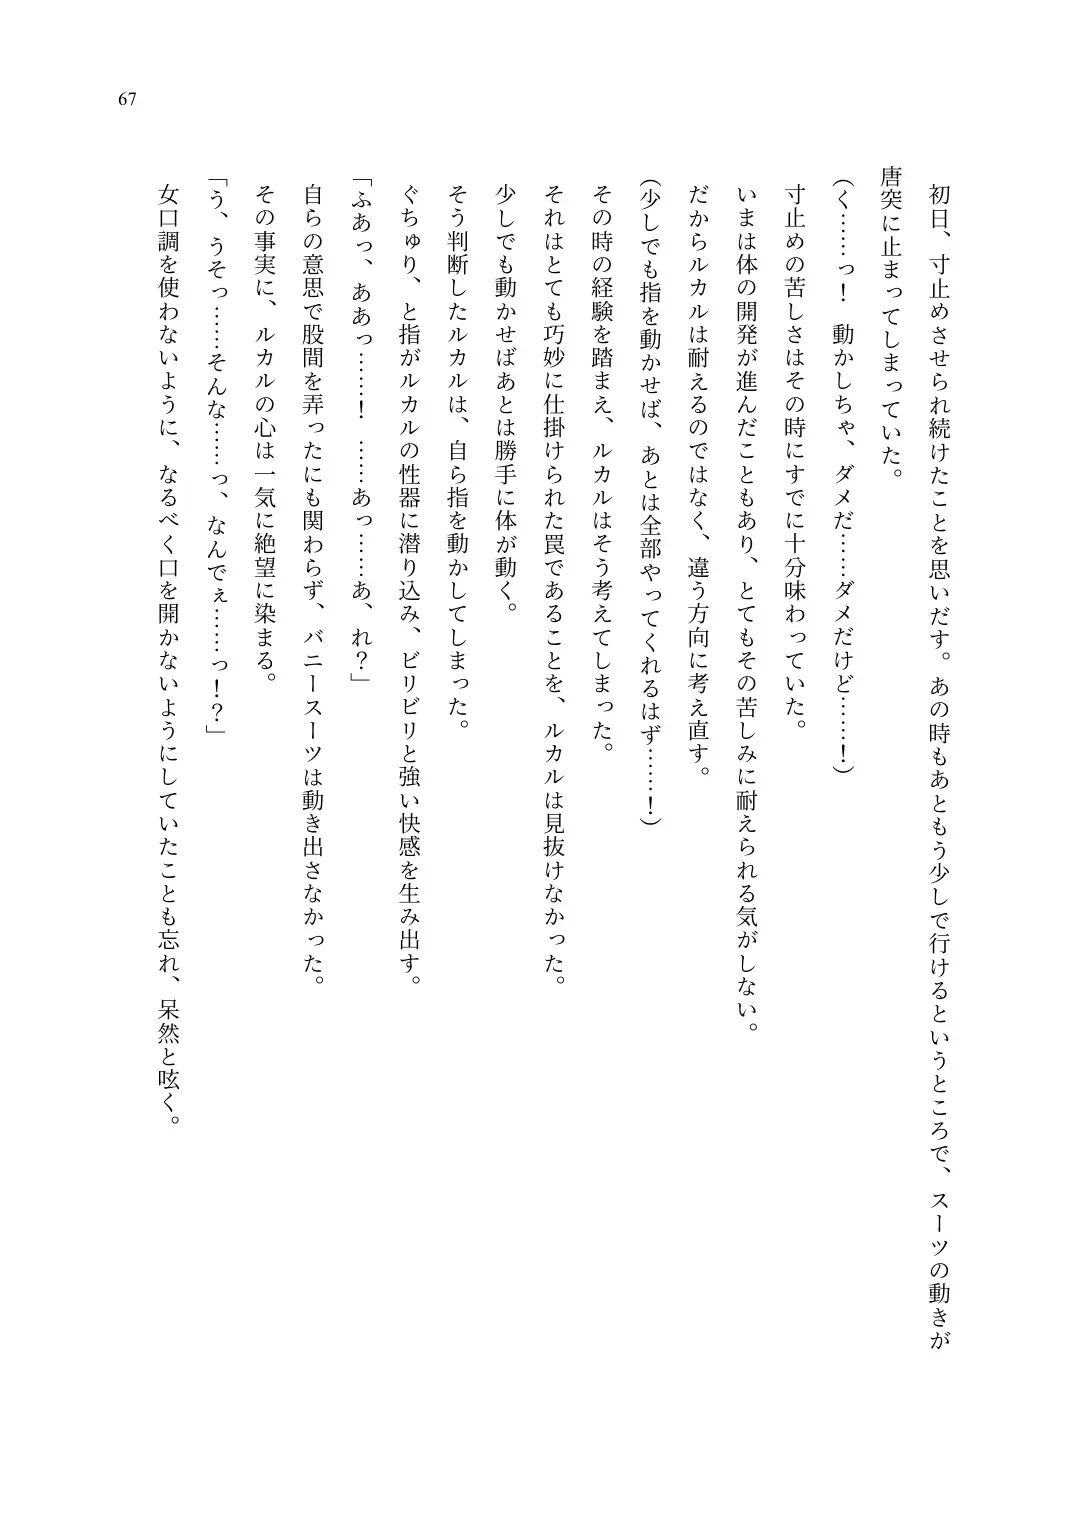 67
　初日、寸止めさせられ続けたことを思いだす。あの時もあともう少しで行けるというところで、スーツの動きが
唐突に止まってしまっていた。
（く……っ！　動かしちゃ、ダメだ……ダメだけど……！）
　寸止めの苦しさはその時にすでに十分味わっていた。
　いまは体の開発が進んだこともあり、とてもその苦しみに耐えられる気がしない。
　だからルカルは耐えるのではなく、違う方向に考え直す。
（少しでも指を動かせば、あとは全部やってくれるはず……！）
　その時の経験を踏まえ、ルカルはそう考えてしまった。
　それはとても巧妙に仕掛けられた罠であることを、ルカルは見抜けなかった。
　少しでも動かせばあとは勝手に体が動く。
　そう判断したルカルは、自ら指を動かしてしまった。
　ぐちゅり、と指がルカルの性器に潜り込み、ビリビリと強い快感を生み出す。
「ふあっ、ああっ……！　……あっ……あ、れ？」
　自らの意思で股間を弄ったにも関わらず、バニースーツは動き出さなかった。
　その事実に、ルカルの心は一気に絶望に染まる。
「う、うそっ……そんな……っ、なんでぇ……っ！？」
　女口調を使わないように、なるべく口を開かないようにしていたことも忘れ、呆然と呟く。